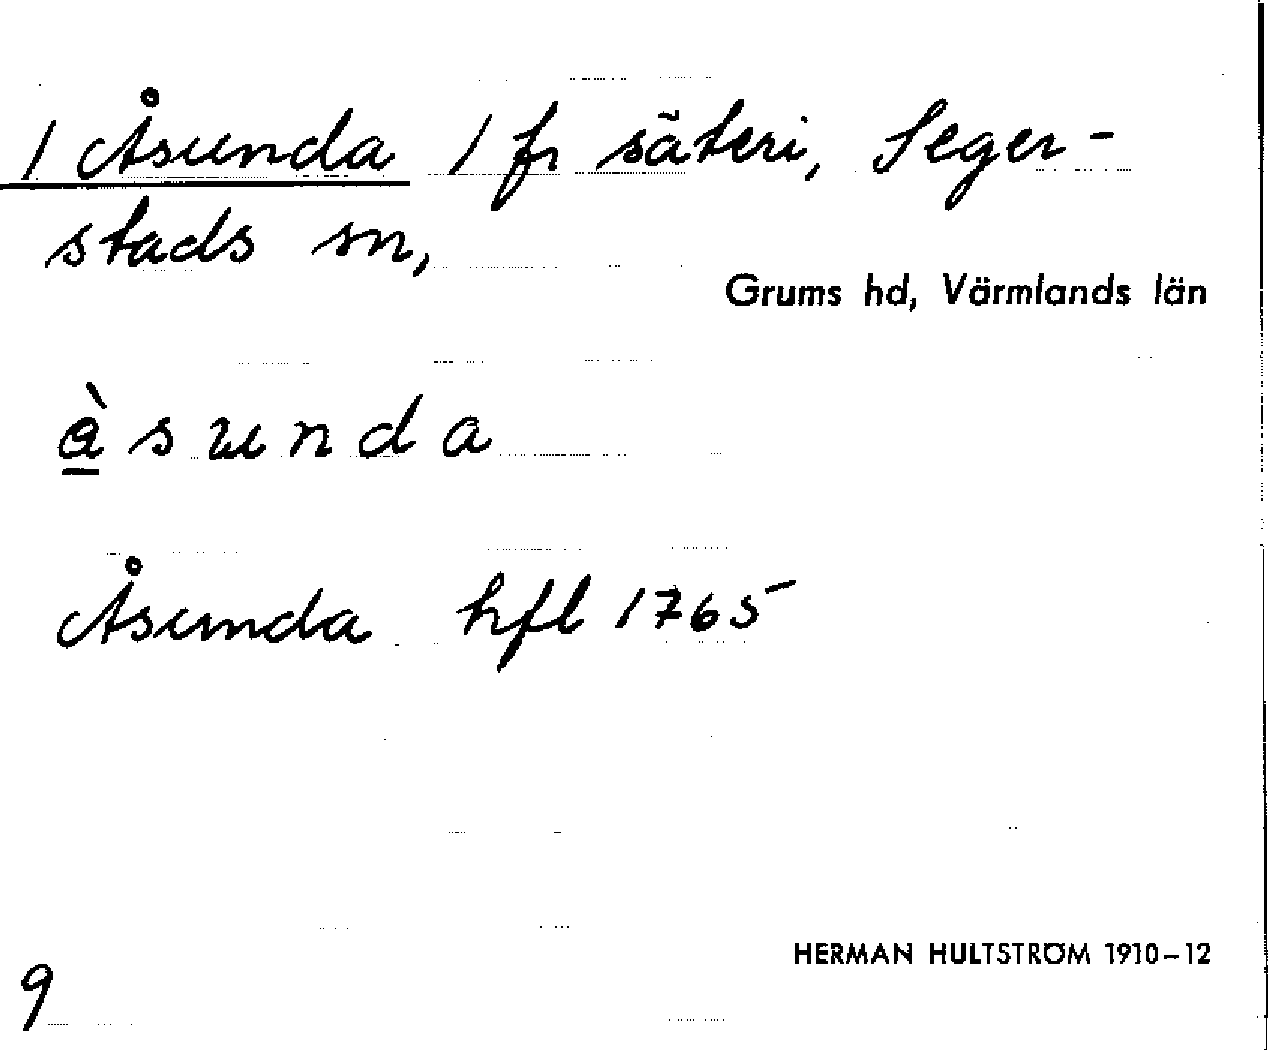 1 Åsunda 1 fr säteri, Seger-
stads sn,
Grums hd, Värmlands län
å̀ s u n d a
Åsunda hfl 1765
HERMAN HULTSTRÖM 1910–12
9